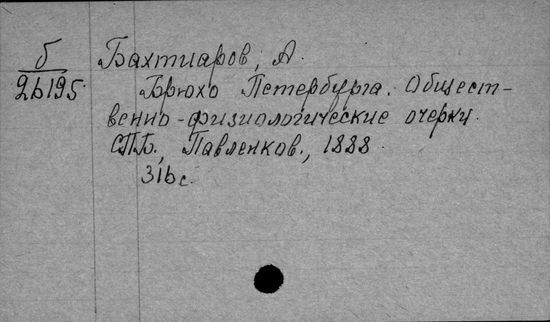 б
26195
Бахтиаров, А.
Брюхо Петербурга. Общест-
венно-физиологические очерки.
СПБ., Павленков., 1888.
316 с.